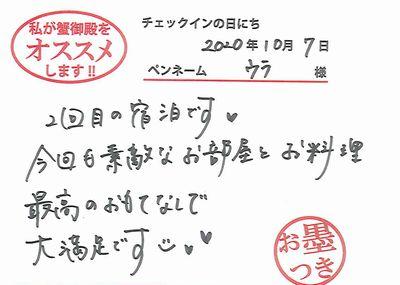 私が蟹御殿を
オススメ
します!!
チェックインの日にち
2020年10月7日
ペンネーム ウラ 様
2回目の宿泊です♥
今回も素敵なお部屋とお料理
最高のおもてなしで
大満足です☺♥♥
お墨
つき